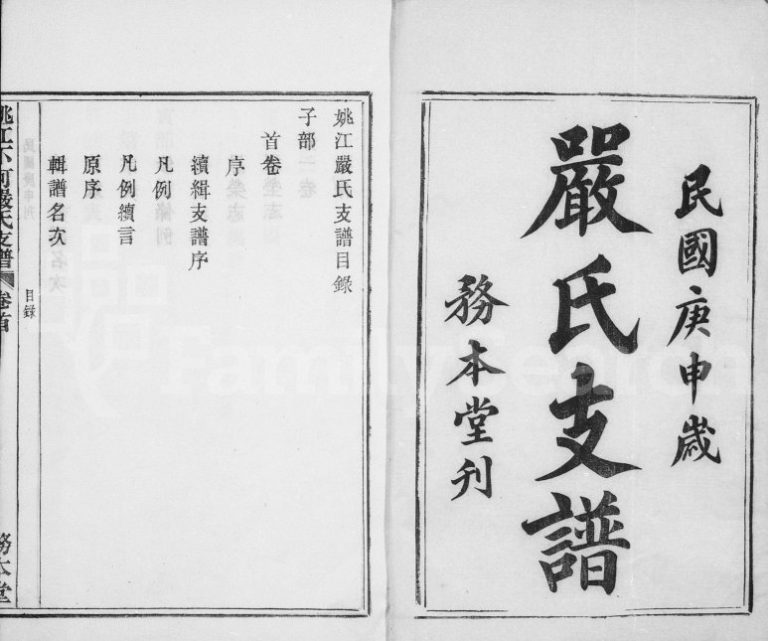 民國庚申歲
嚴氏支譜
務本堂刊
姚江嚴氏支譜目錄
子部
首卷
序
續緝支譜序
凡例
凡例續言
原序
輯譜名次
目錄
嚴氏支譜
卷首
務本堂
FamilySearch